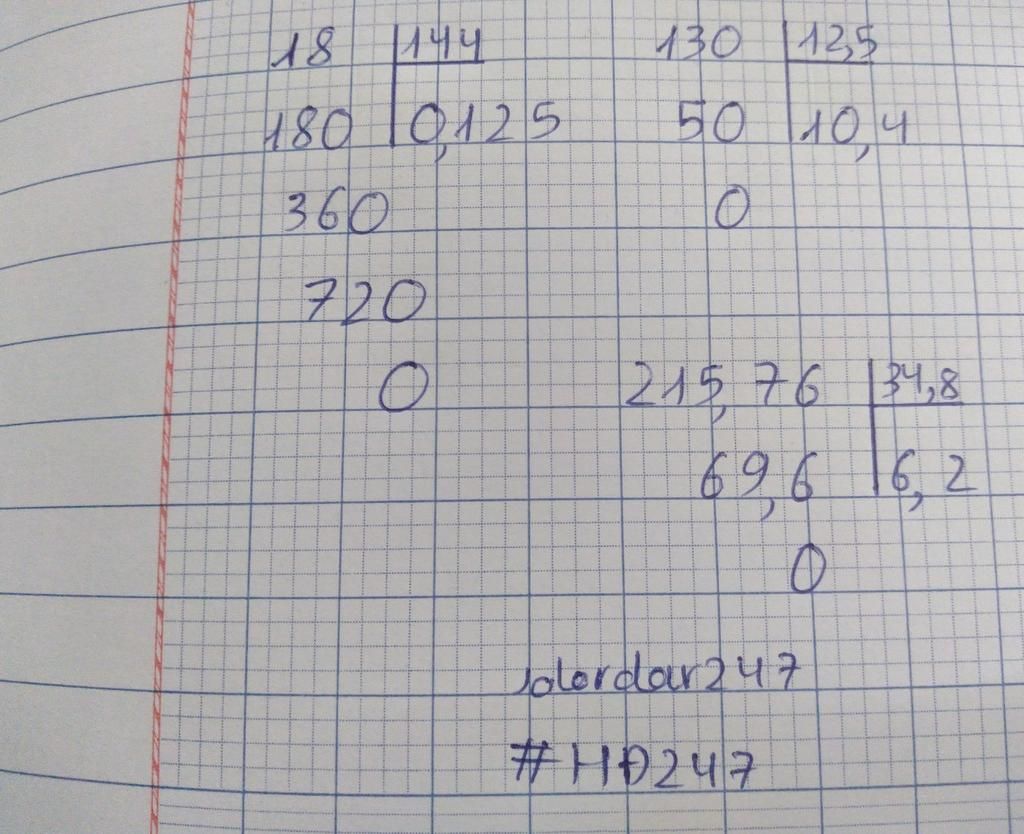 18 144 130 12,5
180 0,125 50 10,4
360 0
720
0 215,76 34,8
69,6 6,2
0
#HĐ247